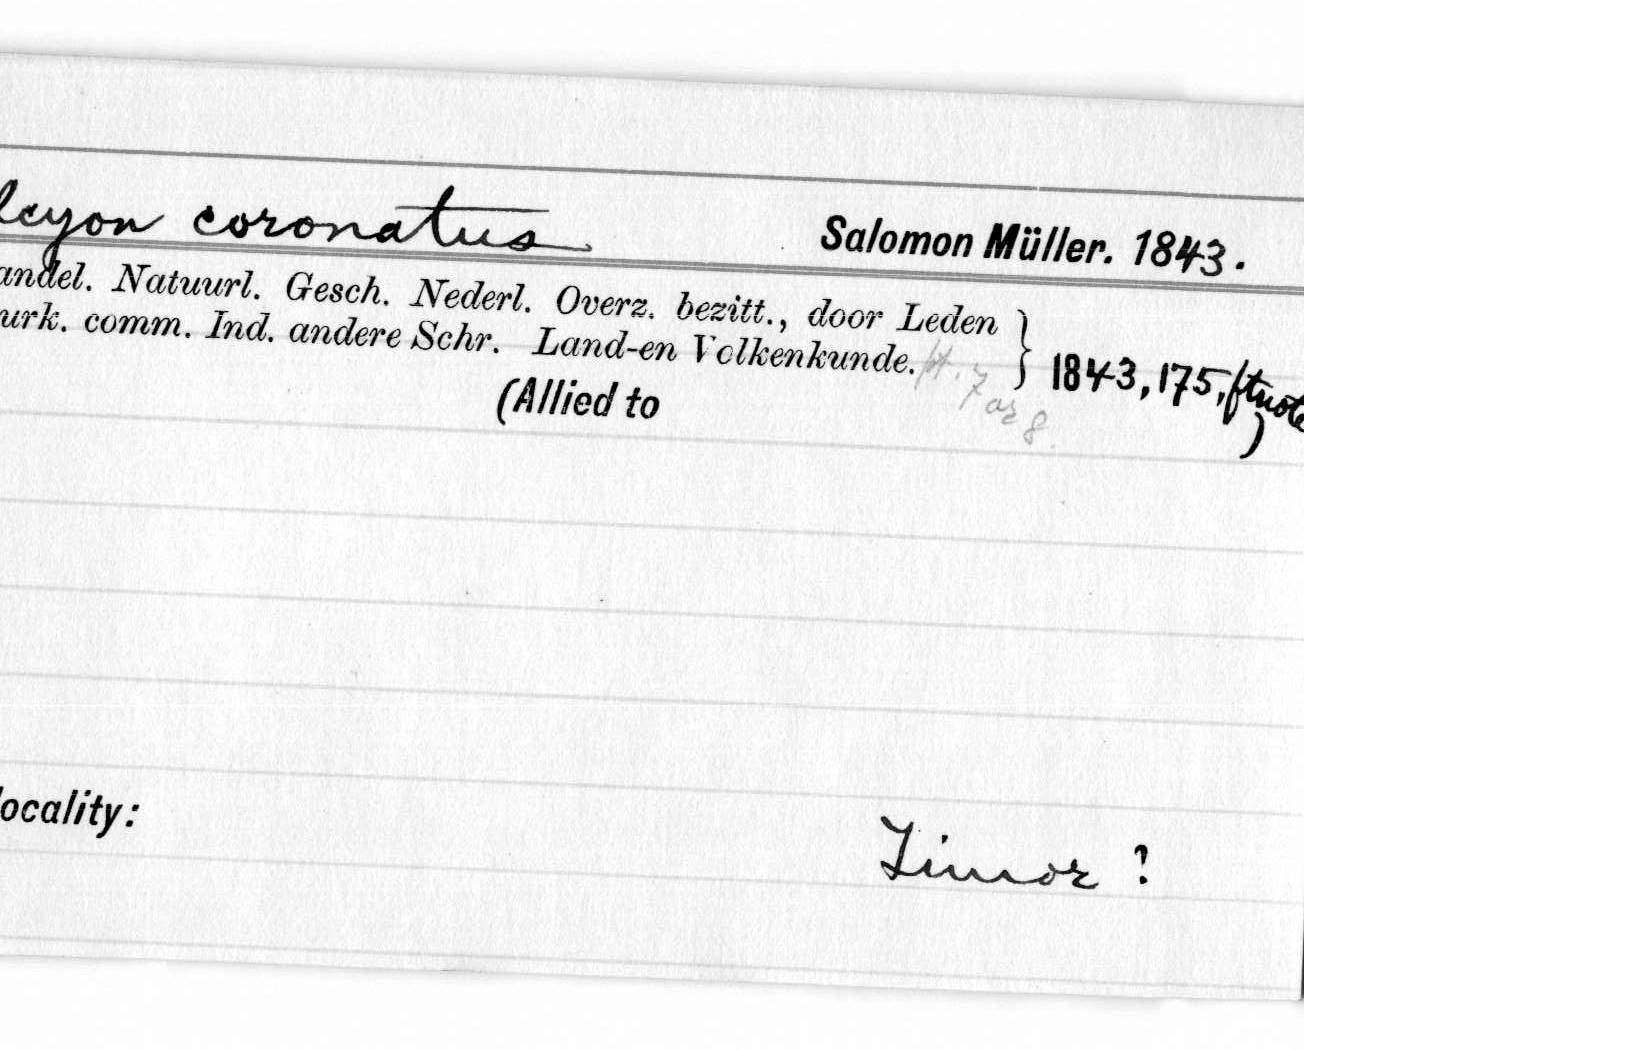 lcyon coronatus Salomon Müller. 1843.
andel. Natuurl. Gesch. Nederl. Overz. bezitt., door Leden
urk. comm. Ind. andere Schr. Land-en Volkenkunde. pt. 7 or 8. } 1843, 175, ftnote)
(Allied to
locality:
Timor ?